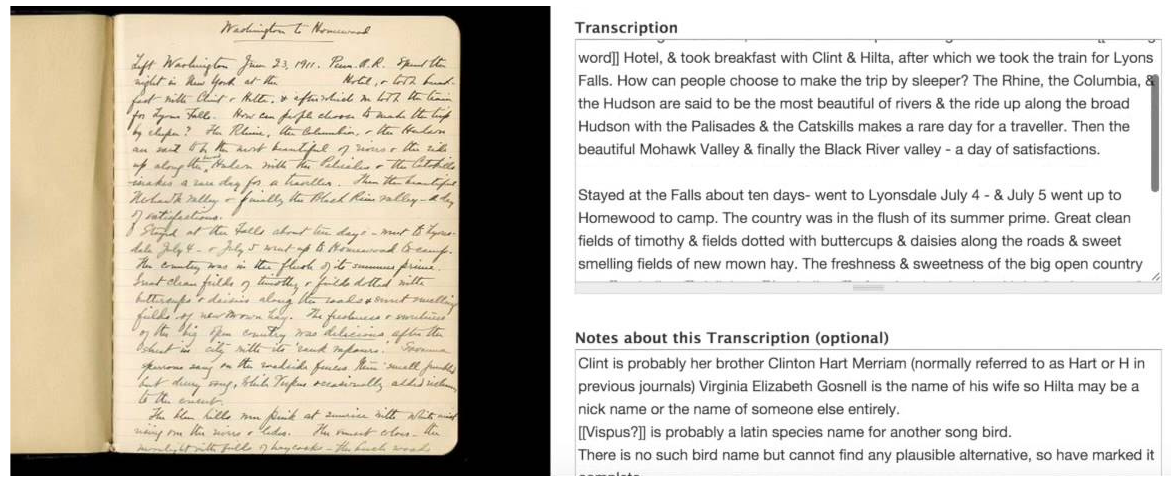 Washington to Homewood
Left Washington Jun 23, 1911. Penn. R.R. Spent the
night in New York at the Hotel, & took break-
fast with Clint & Hilta, & after which we took the train
for Lyons Falls. How can people choose to make the trip
by sleeper? The Rhine, the Columbia, & the Hudson
are said to be the most beautiful of rivers & the ride
up along the broad Hudson with the Palisades & the Catskills
makes a rare day for a traveller. Then the beautiful
Mohawk valley & finally the Black River valley - a day
of satisfactions.
Stayed at the Falls about ten days - went to Lyons-
dale July 4 - & July 5 went up to Homewood to camp.
The country was in the flush of its summer prime.
Great clean fields of timothy & fields dotted with
buttercups & daisies along the roads & sweet smelling
fields of new mown hay. The freshness & sweetness
of the big open country was delicious after the
in city with its 'rank vapours'.
sparrows sang on the roadside fences their small
but song, while occasionally added
to the
The blue hills were pink at sunrise with white mist
rising from the rivers & lakes. The sunset colors - the
moonlight with fields of haycocks - the woods
Transcription
word]] Hotel, & took breakfast with Clint & Hilta, after which we took the train for Lyons
Falls. How can people choose to make the trip by sleeper? The Rhine, the Columbia, &
the Hudson are said to be the most beautiful of rivers & the ride up along the broad
Hudson with the Palisades & the Catskills makes a rare day for a traveller. Then the
beautiful Mohawk Valley & finally the Black River valley - a day of satisfactions.
Stayed at the Falls about ten days- went to Lyonsdale July 4 - & July 5 went up to
Homewood to camp. The country was in the flush of its summer prime. Great clean
fields of timothy & fields dotted with buttercups & daisies along the roads & sweet
smelling fields of new mown hay. The freshness & sweetness of the big open country
Notes about this Transcription (optional)
Clint is probably her brother Clinton Hart Merriam (normally referred to as Hart or H in
previous journals) Virginia Elizabeth Gosnell is the name of his wife so Hilta may be a
nick name or the name of someone else entirely.
[[Vispus?]] is probably a latin species name for another song bird.
There is no such bird name but cannot find any plausible alternative, so have marked it